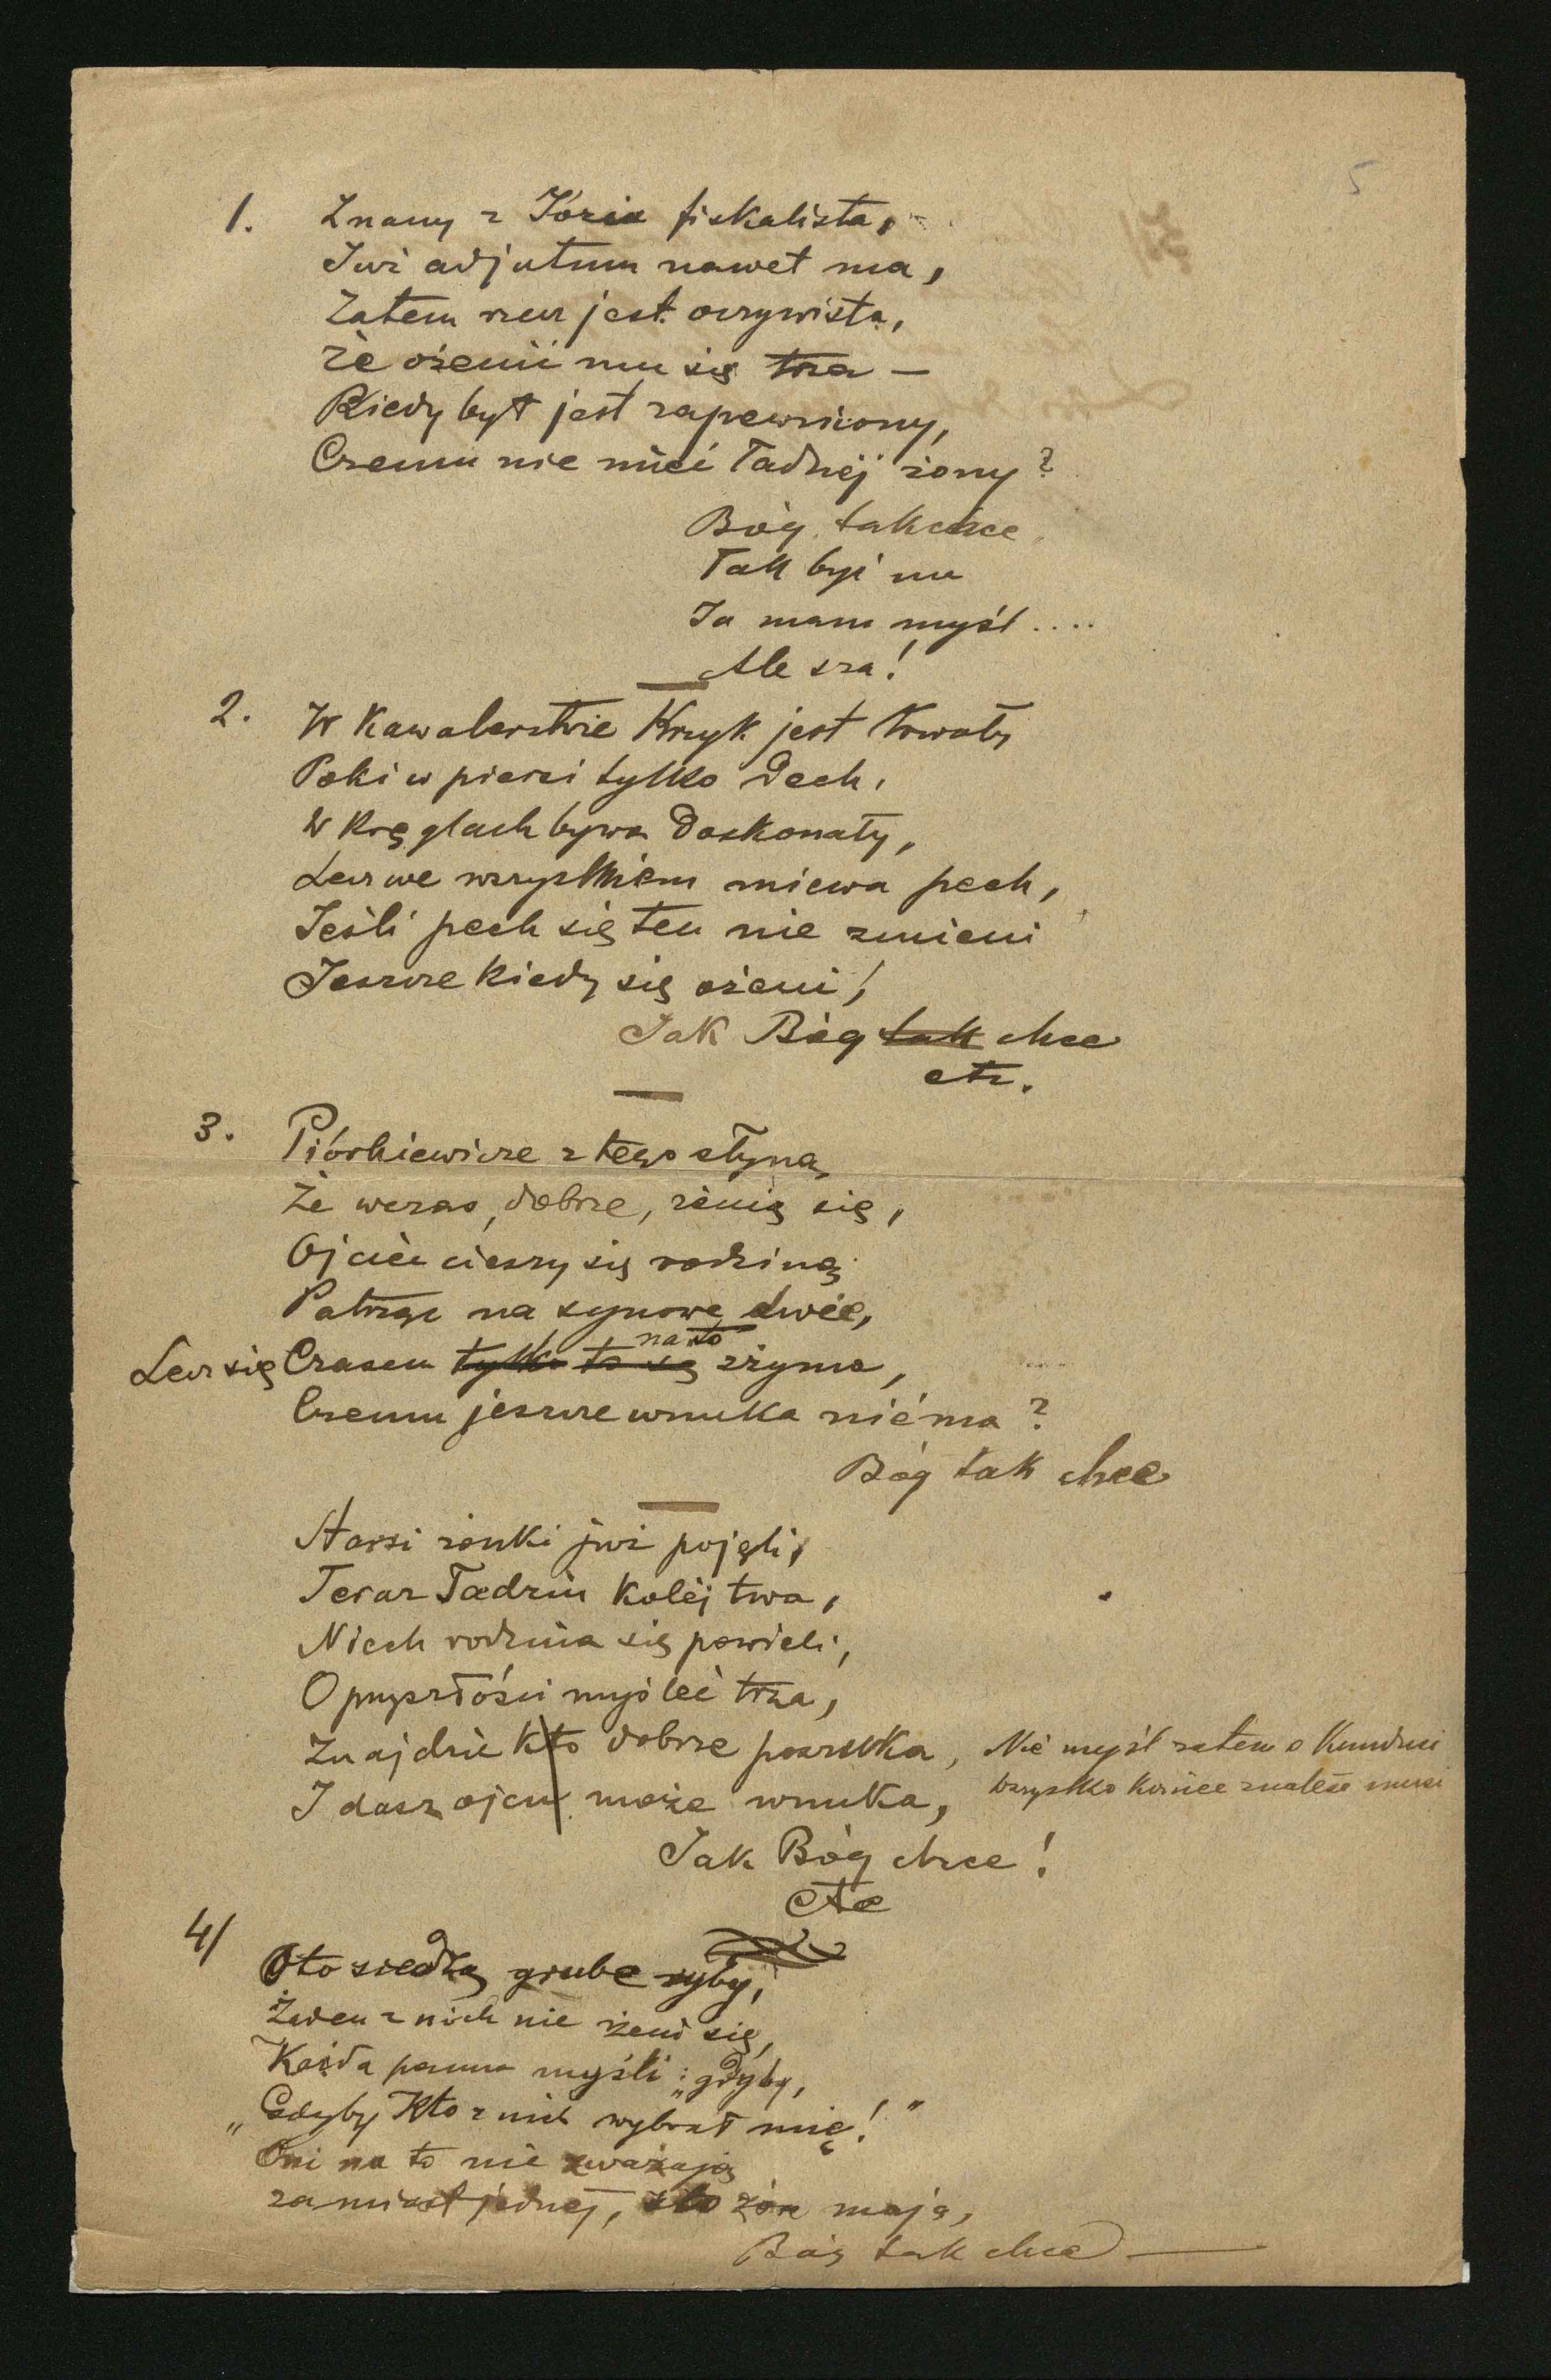 5
1. Znany z Józia fiskalista,
Już adjutum nawet ma,
Zatem rzecz jest oczywista,
Że ożenić mu się trza —
Kiedy byt jest zapewniony,
Czemu nie mieć ładnej żony?
Bóg tak chce
Tak być ma
Ja mam myśl ....
Ale sza!
2. W kawalerstwie Kruyk jest trwały
Póki w piersi tylko dech,
W kręglach bywa doskonały,
Lecz we wszystkiem miewa pech,
Jeśli pech się ten nie zmieni
Jeszcze kiedy się ożeni!
Jak Bóg tak chce
etc.
3. Piórkiewicze z tego słyną,
Że wczas, dobrze, żenią się,
Ojciec cieszy się rodziną
Patrząc na synowe dwie,
na to
Lecz się Czasem tylko to się zżyma,
Czemu jeszcze wnuka niéma?
Bóg tak chce
Starsi żonki już pojęli,
Teraz Tadziu kolej twa,
Niech rodzina się powieli,
O przyszłości myśleć trza,
Znajdzie kto dobrze poszuka, Nie myśl zatem o
I dasz ojcu może wnuka, Wszystko koniec znaleść musi
Jak Bóg chce!
etc
4/
Oto siedzą grube ryby,
Żaden z nich nie żeni się,
Każda panna myśli: „gdyby,
„Gdyby kto z nich wybrał mię!"
Oni na to nie zważają
zamiast jednej, sto żon mają,
Bóg tak chce —